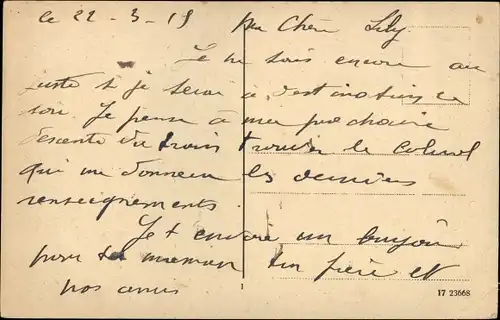 Le 22 - 3 - 19 Ma Chère Lily
Je ne sais encore au
juste si je serai à destination ce
soir. Je pense à ma prochaine
descente du train trouver le colonel
qui me donnera les derniers
renseignements.
Je t envoie un
pour ta maman ton frère et
nos amis
17 23668